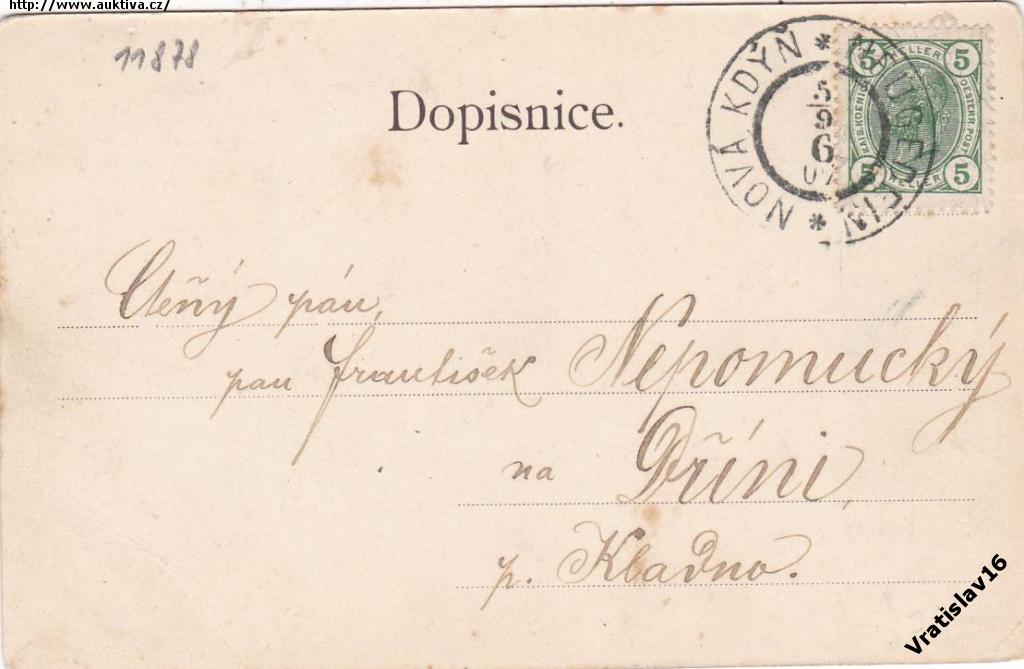 http://www.auktiva.cz/
11878
Dopisnice.
NOVÁ KDYŇ * NEUGEDEIN *
5
9
6
07
5 HELLER 5
KAIS. KOENIG. OESTERR. POST
5 HELLER 5
Ctěný pán,
pan František Nepomucký
na Dříni,
p. Kladno.
Vratislav16